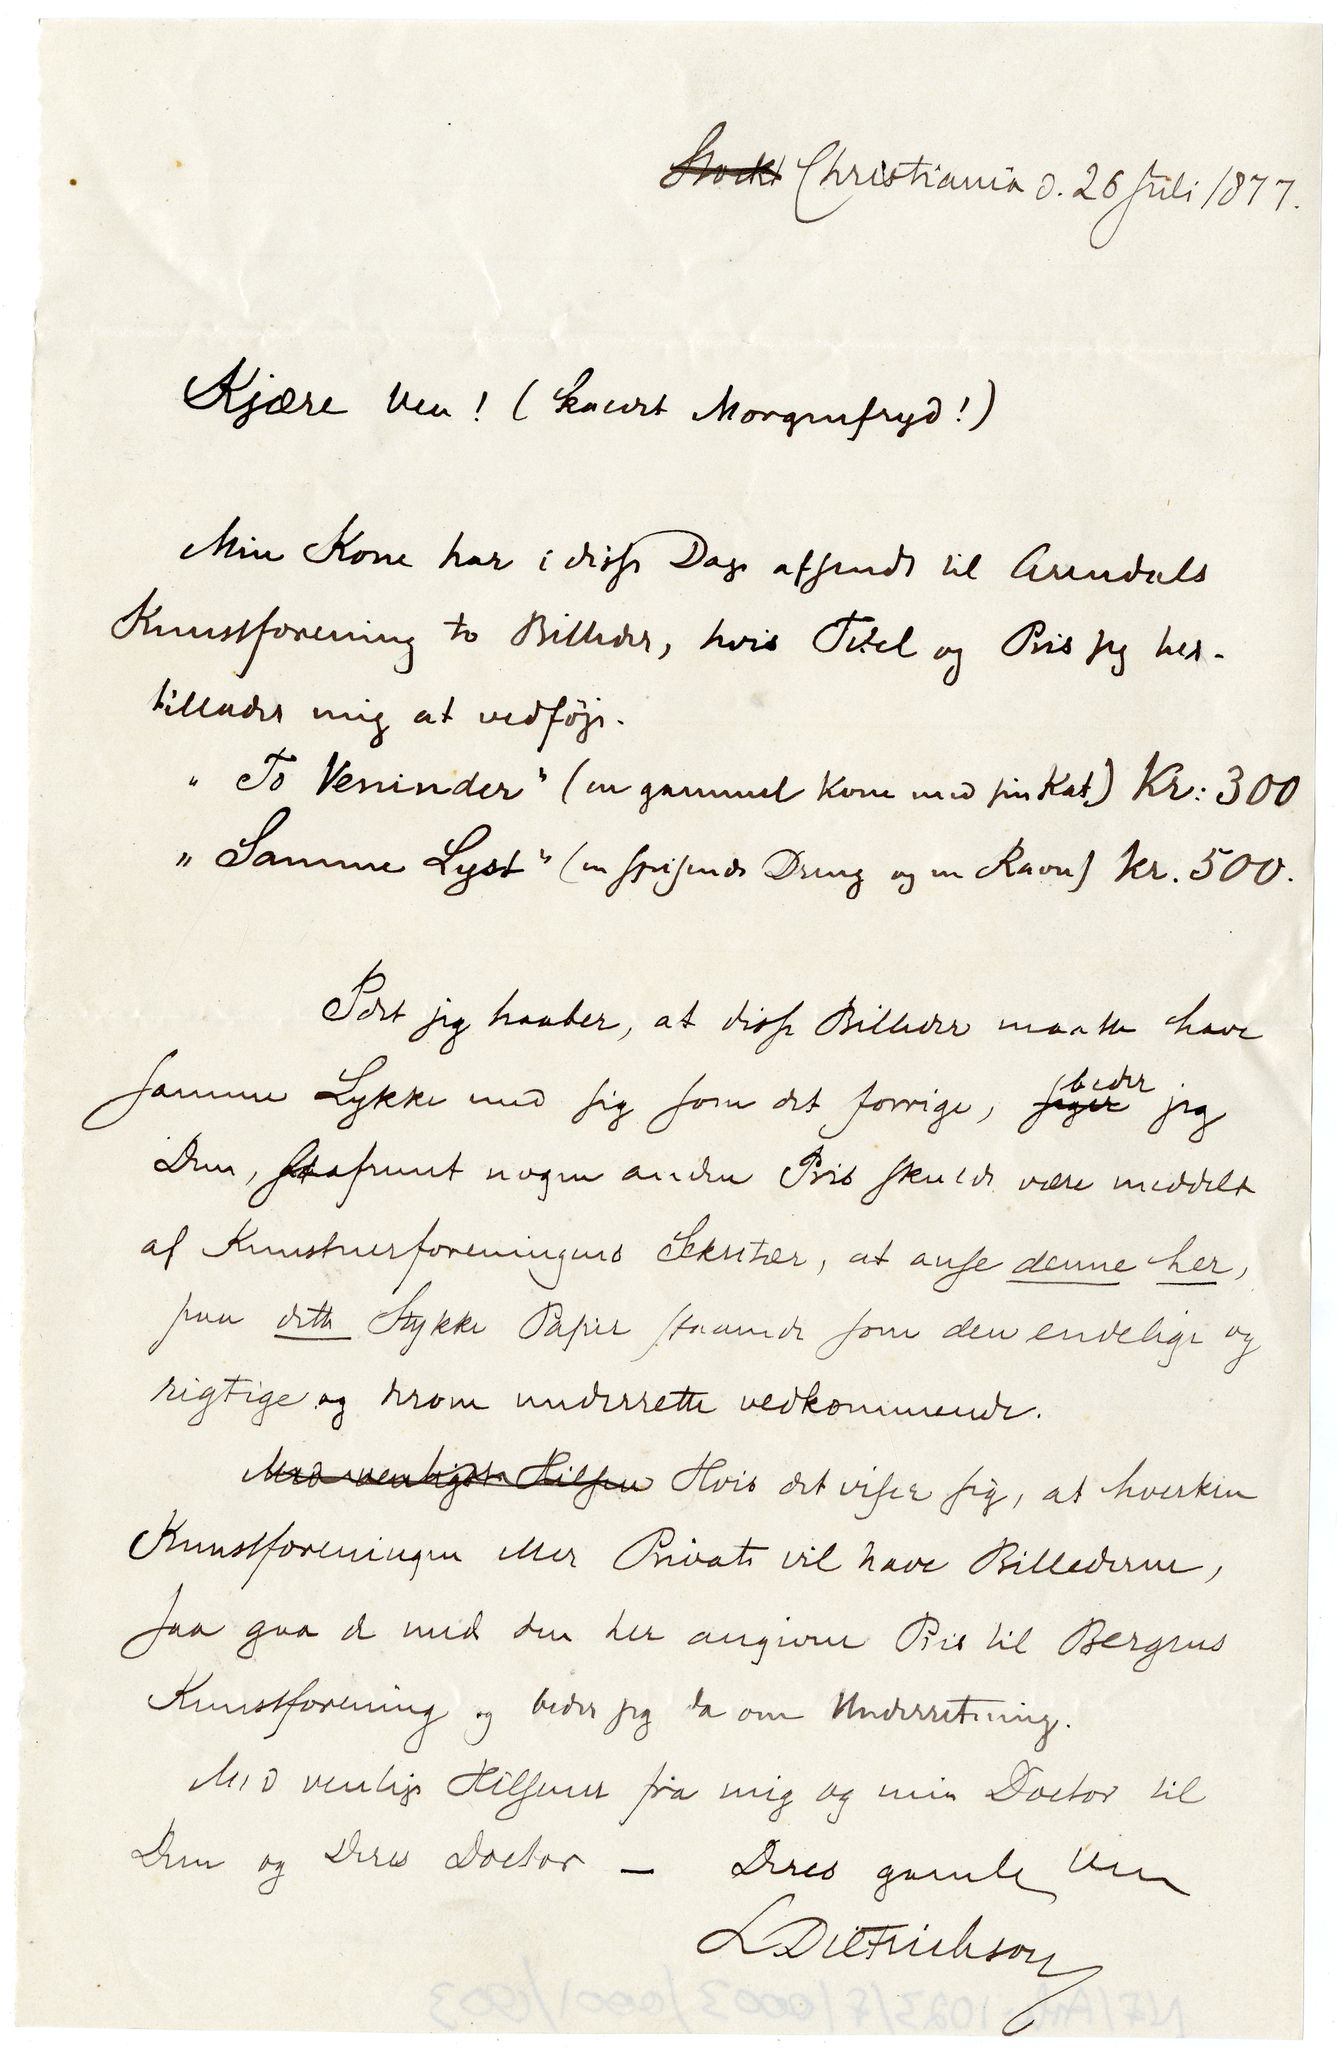 Stockh Christiania d. 26 Juli 1877.
Kjære Ven! (Snart Morgenfryd!)
Min Kone har i disse Dage afsendt til Arendals
Kunstforening to Billeder, hvis Titel og Pris jeg her-
tillader mig at vedføje.
" To Veninder" (en gammel Kone med sin Kat) Kr: 300
" Samme Lyst" (en spisende Dreng og en Ravn) Kr. 500.
Idet jeg haaber, at disse Billeder maatte have
samme Lykke med sig som det forrige, beder jeg
Dem, saafremt nogen anden Pris skulde være meddelt
af Kunstnerforeningens Sekretær, at anse denne her,
paa dette Stykke Papir staaende som den endelige og
rigtige og derom underrette vedkommende.
Med venligste Hilsen Hvis det viser sig, at hverken
Kunstforeningen eller Private vil have Billederne,
saa gaa de med den her angivne Pris til Bergens
Kunstforening og beder jeg da om Underretning.
Med venlig Hilsener fra mig og min Doctor til
Dem og Deres Doctor — Deres gamle Ven
L Dietrichson